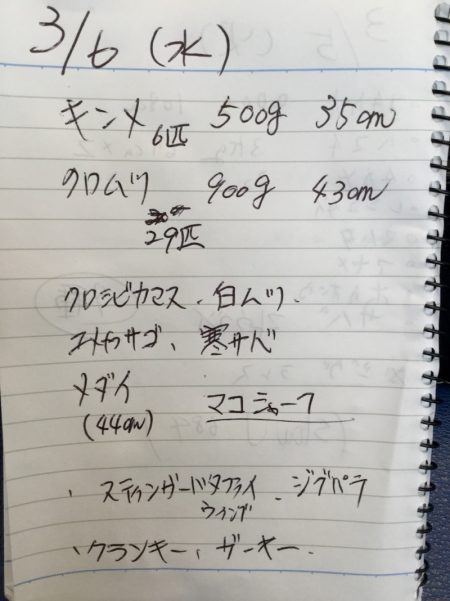 3/6 (水)
キンメ 6匹 500g 35cm
クロムツ 900g 43cm
29匹
クロシビカマス、白ムツ、
ユメカサゴ、寒サバ
メダイ
(44cm) マコジョーフ
・スティングバタフライ
ウイング
、ジグパラ
、クランキー、ザーキー、